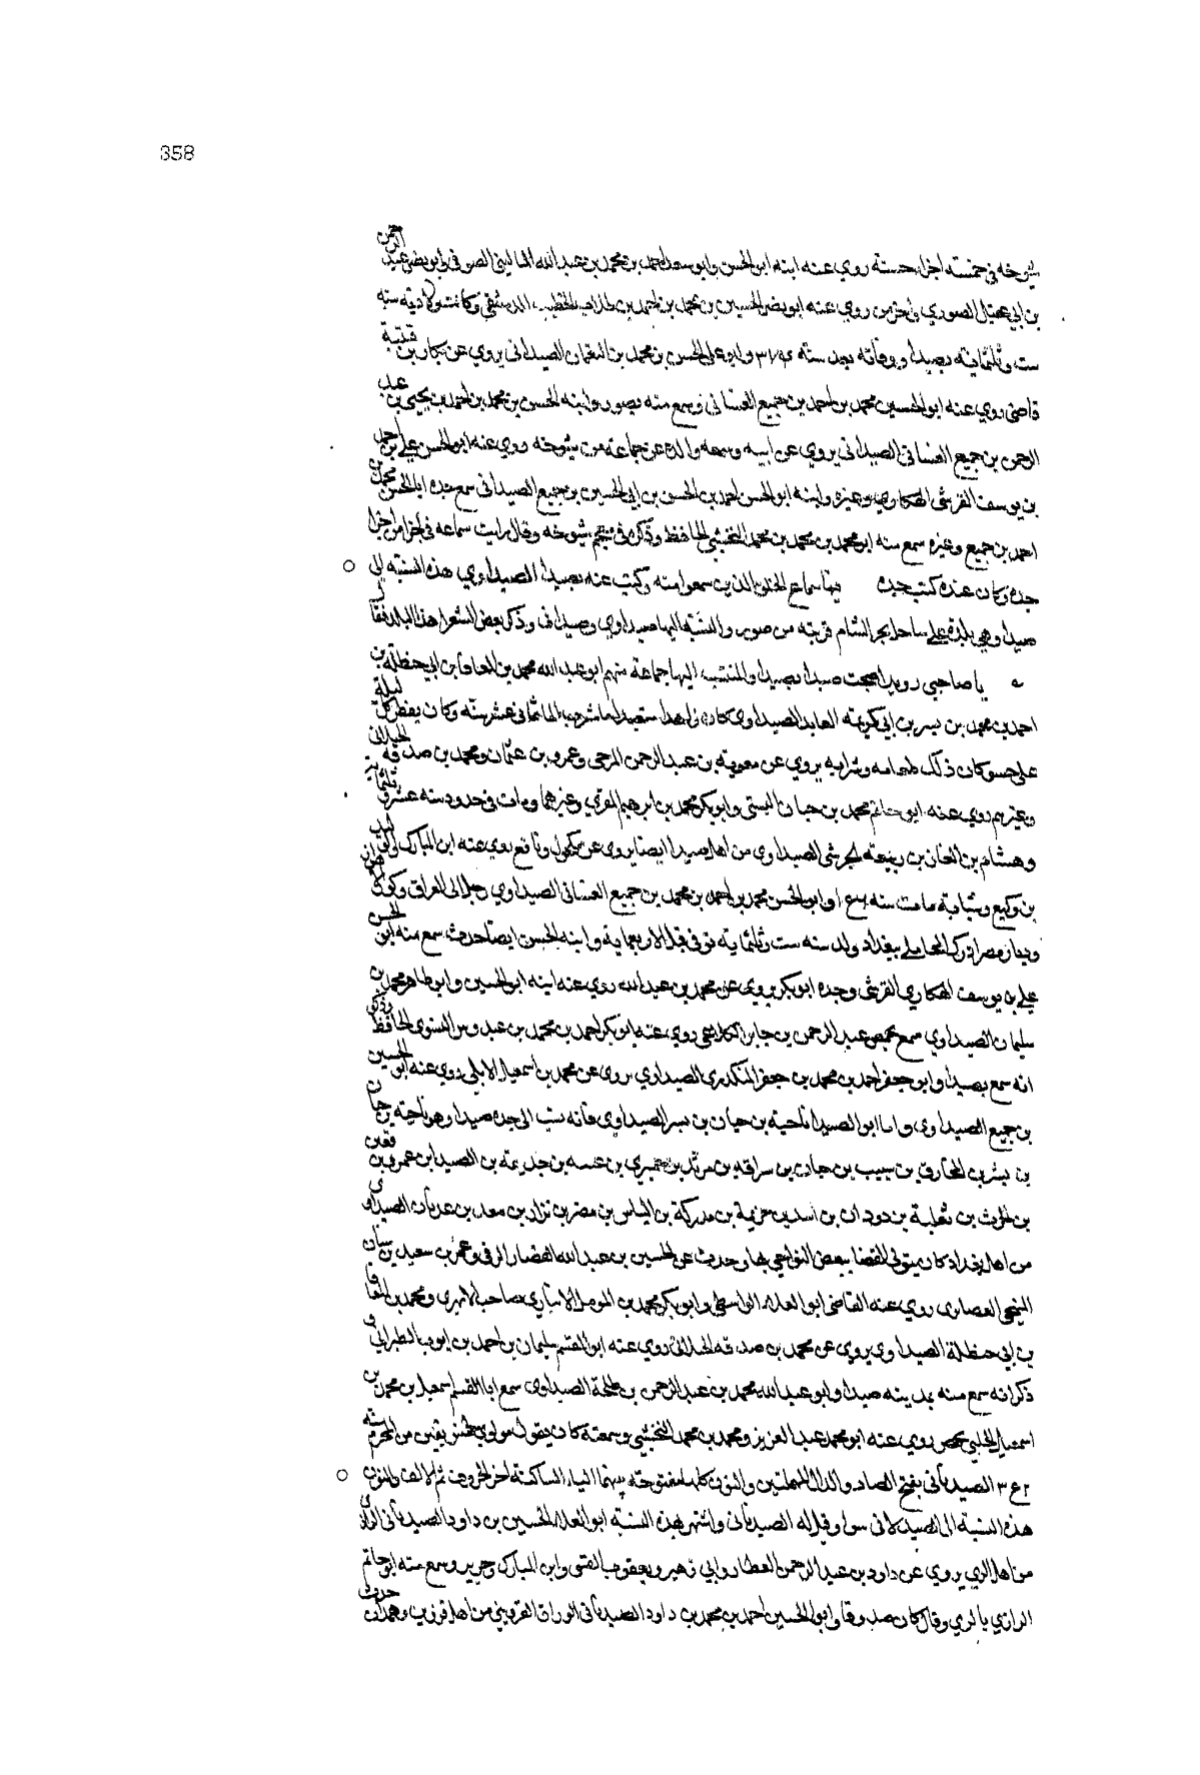 358
شيوخه في خمسة اجزاء حسنة روي عنه ابنه ابو الحسن وابو سعد احمد بن محمد بن عبد الله الماليني الصوفي وابو نصر عبد الرحمن
بن ابي عقيل الصوري واخرمن روي عنه ابو نصر الحسين بن محمد بن احمد بن طلاب الخطيب الدمشقي وكانت ولادته سنه
ست وثلثماية بصيدا ووفاته بعد سنة وابو علي الحسن بن محمد بن النعمان الصيداني يروي عن بكار بن قتيبة
قاضي روي عنه ابو الحسين محمد بن احمد بن جميع الغساني وسمع منه بصور وابنه الحسن بن محمد بن احمد بن يحيى بن عبد
الرحمن بن جميع الغساني الصيداني يروي عن ابيه وسمعه والده عن جماعة من شيوخه روي عنه ابو الحسن علي بن احمد
بن يوسف القرشي الهكاري وغيره وابنه ابو الحسن احمد بن الحسن بن ابي الحسين بن جميع الصيداني سمع جده ابا الحسن محمد بن
احمد بن جميع وغيره سمع منه ابو محمد بن محمد بن محمد النخشبي الحافظ وذكره في معجم شيوخه وقال رايت سماعه في اجزا من اجزا
جده وكان عنده كتب جده فيها سماع الخلق الذين سمعوا منه وكتب عنه بصيدا الصيداوي هذه النسبة الى
صيدا وهي بلدة على ساحل بحر الشام قريبة من صور والنسبة اليها صيداوي وصيداني وذكر بعض الشعرا هذا البلد فقال
يا صاحبي رويدا بصيدا والمنتسب اليها جماعة منهم ابو عبد الله محمد بن المعافا بن ابي حنظلة بن
احمد بن محمد بن بسر بن ابي كريمة العابد الصيداوي كان زاهدا متعبدا ما شرب الماء ثماني عشر سنة وكان يفطر كل ليلة
على حسو كان ذلك طعامه وشرابه يروي عن معوية بن عبد الرحمن الرحبي وعمرو بن عثمان ومحمد بن صدقة الجبلاني
وغيرهم روي عنه ابو حاتم محمد بن حبان البستي وابو بكر محمد بن ابرهيم المقري وغيرهما ومات في حدود سنه عشر وثلثماية
وهشام بن الغاز بن ربيعة الجرشي الصيداوي من اهل صيدا ايضا يروي عن مكحول ونافع روي عنه ابن المبارك
بن وكيع وشبابة مات سنه وابو الحسن محمد بن احمد بن محمد بن جميع الغساني الصيداوي رحل الى العراق وكور الاهواز
وديار مصر ادرك المحاملي ببغداد ولد سنه ست وثلثماية توفي قبل الاربعماية وابنه الحسن ايضا حدث سمع منه ابو الحسن
علي بن يوسف الهكاري القرشي وجده ابو بكر يروي عن محمد بن عبد الله روي عنه ابنه ابو الحسين وابو طاهر محمد بن
سليمان الصيداوي سمع بحمص عبد الرحمن بن جابر الكلاعي روي عنه ابو بكر احمد بن محمد بن عبدوس النسوي الحافظ وذكر
انه سمع بصيدا وابو جعفر احمد بن محمد بن جعفر المنكدري الصيداوي يروي عن محمد بن اسمعيل الايلي روي عنه ابو الحسين
بن جميع الصيداوي واما ابو الصيدا ناجية بن حيان بن بسر الصيداوي فانه نسب الى جده صيدا وهو ناجية بن حيان
بن بشر بن المخارق بن شبيب بن حيان بن سراقه بن مرثد بن حميري بن عتبه بن جذيمة بن الصيدا بن عمرو بن قعين
بن الحرث بن ثعلبة بن دودان بن اسد بن خزيمة بن مدركة بن الياس بن مضر بن نزار بن معد بن عدنان الصيداوي
من اهل بغداد كان يتولى القضا ببعض النواحي بها وحدث عن الحسين بن عبد الله القصار الرقي وعمر بن سعيد بن سنان
المنبجي روي عنه القاضي ابو العلاء الواسطي وابو بكر محمد بن المومل الانباري صاحب الابهري ومحمد بن المعافا
بن ابي حنظلة الصيداوي يروي عن محمد بن صدقه الجبلاني روي عنه ابو القسم سليمان بن احمد بن ايوب الطبراني و
ذكر انه سمع منه بمدينه صيدا وابو عبد الله محمد بن عبد الرحمن بن طلحة الصيداوي سمع ابا القسم اسمعيل بن محمد بن
اسمعيل الحلبي بحمص روي عنه ابو محمد عبد العزيز ومحمد بن محمد النخشبي وسمعته كان يقول مولدي بقين من المحرم سنه
الصيدناني بفتح الصاد والدال المهملتين والنون كلها مفتوحة بينهما الياء الساكنة اخر الحروف ثم الالف والنون
هذه النسبة الى الصيدلاني سوا وقيل له الصيدناني واشتهر بهذه النسبة ابو العلاء الحسين بن داود الصيدناني الرازي
من اهل الري يروي عن داود بن عبد الرحمن العطار وابي زهير ويعقوب القمي وابن المبارك وجرير وسمع منه ابو حاتم
الرازي بالري وقال كان صدوقا وابو الحسين احمد بن محمد بن داود الصيدناني الوراق القزويني من اهل قزوين وهمدان حدث